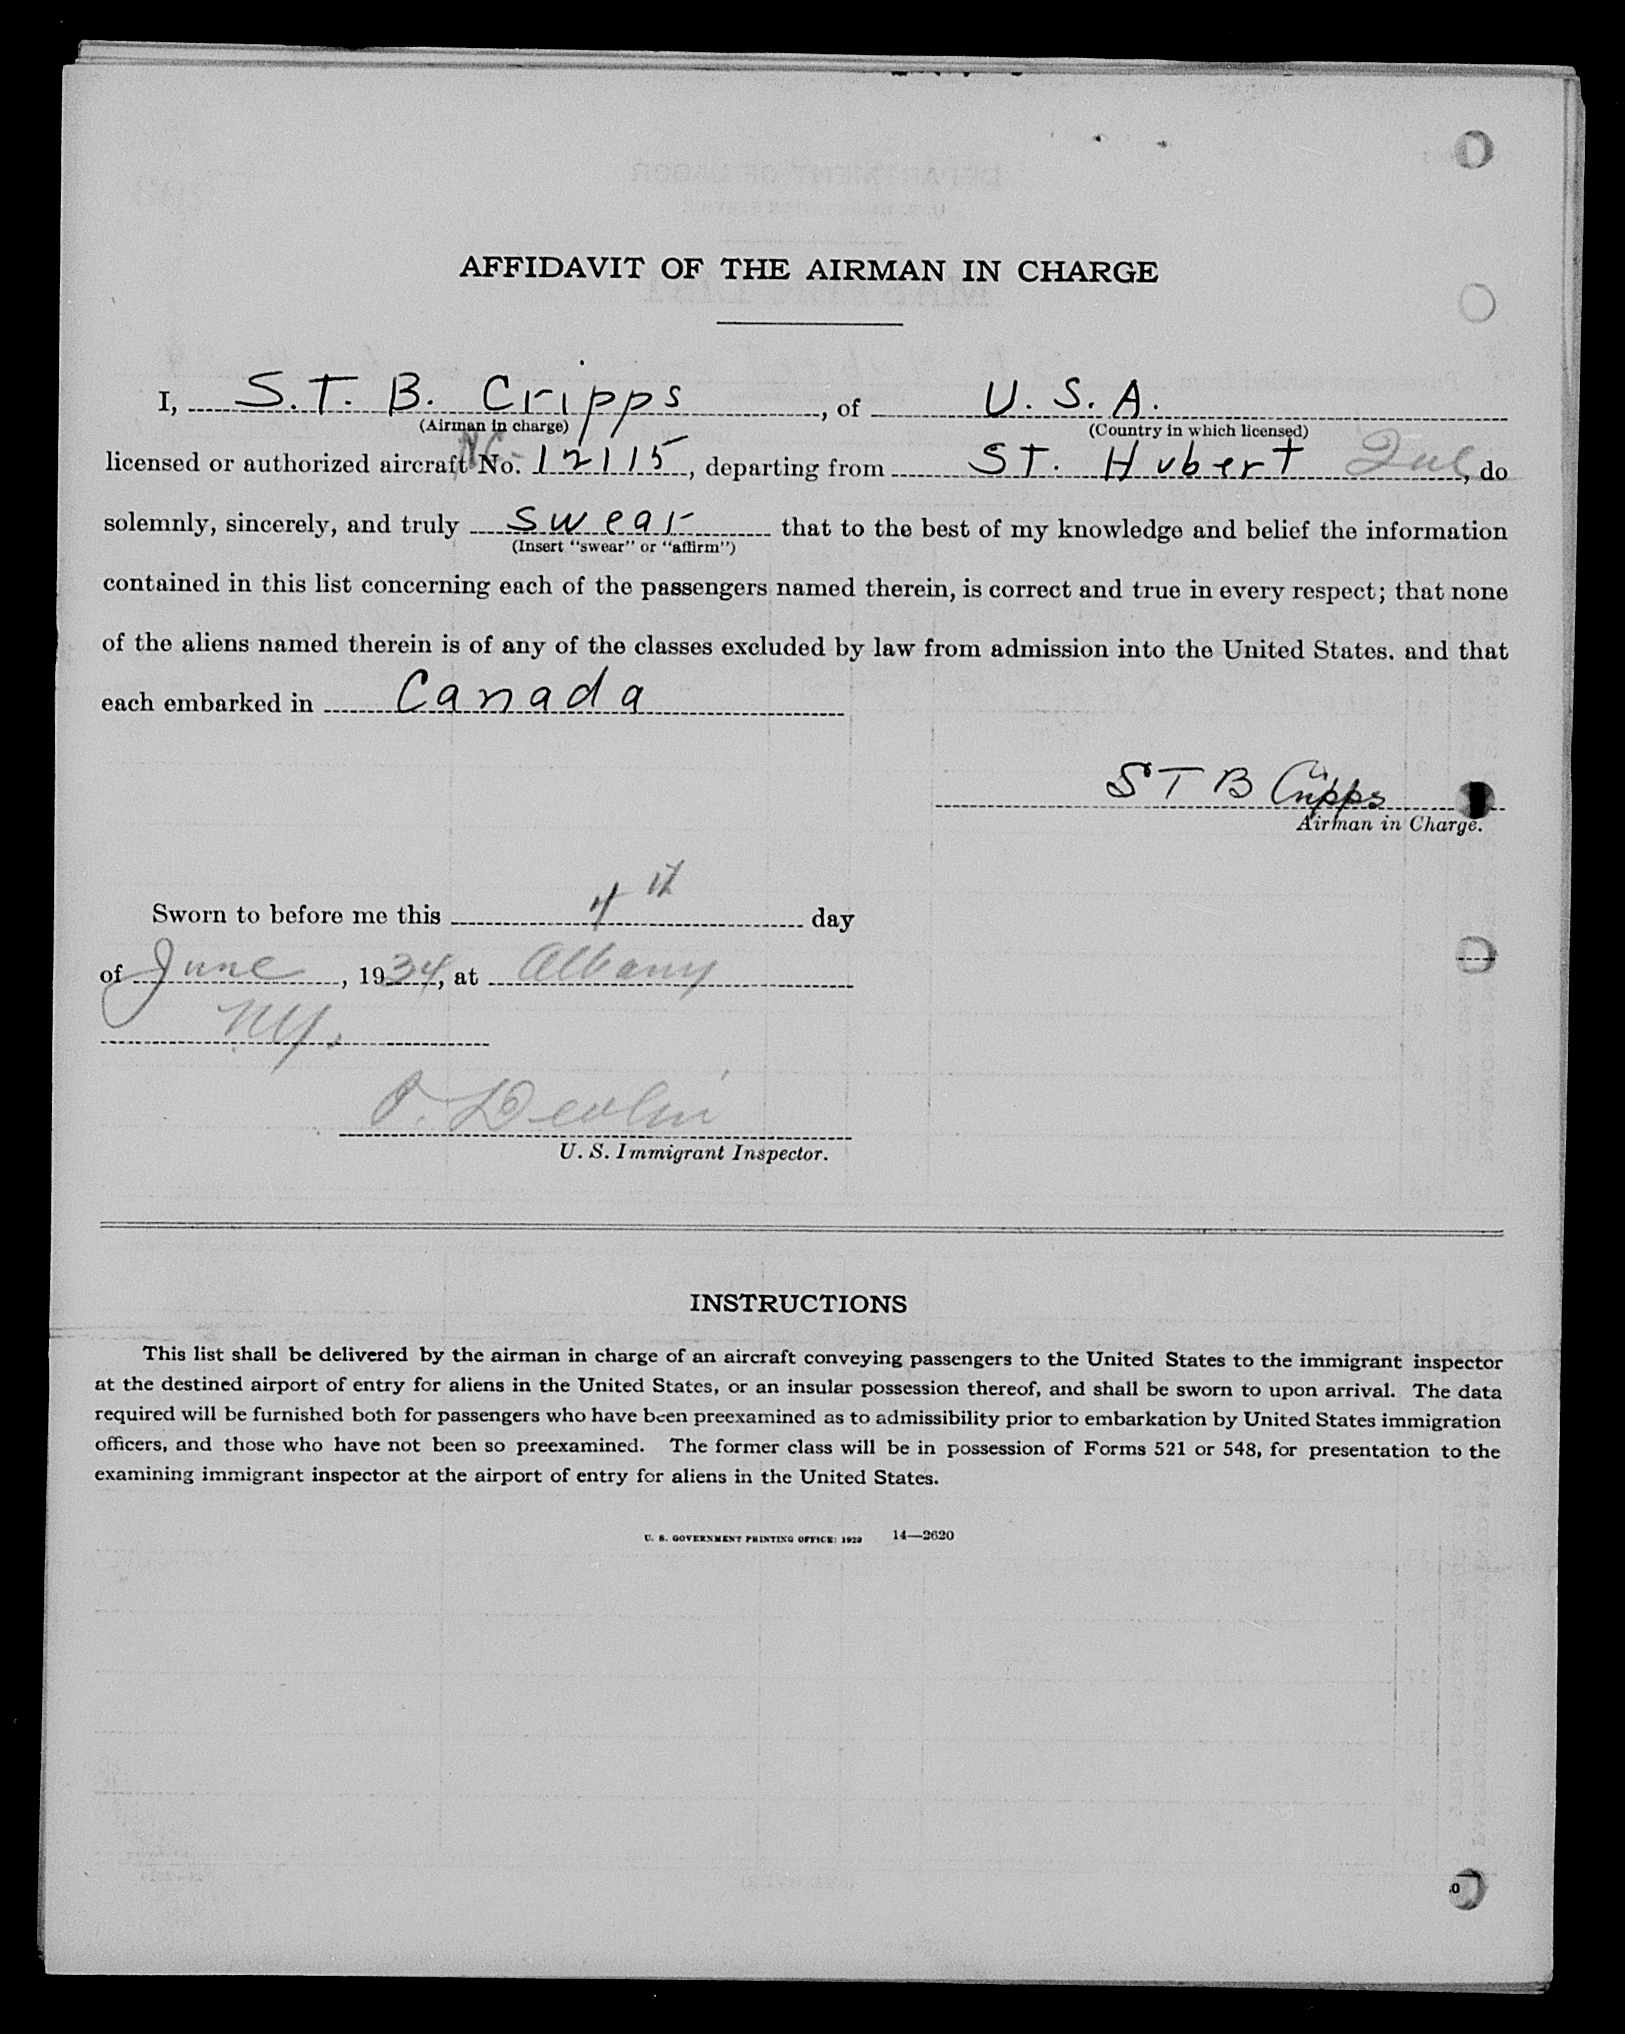 AFFIDAVIT OF THE AIRMAN IN CHARGE
I, S.T. B. Cripps, of U.S.A.
(Airman in charge) (Country in which licensed)
licensed or authorized aircraft NC- No. 12115, departing from ST. Hubert Que, do
solemnly, sincerely, and truly swear that to the best of my knowledge and belief the information
(Insert "swear" or "affirm")
contained in this list concerning each of the passengers named therein, is correct and true in every respect; that none
of the aliens named therein is of any of the classes excluded by law from admission into the United States. and that
each embarked in Canada
S T B Cripps
Airman in Charge.
Sworn to before me this 4th day
of June, 1934, at Albany
NY.
Devlin
U. S. Immigrant Inspector.
INSTRUCTIONS
This list shall be delivered by the airman in charge of an aircraft conveying passengers to the United States to the immigrant inspector
at the destined airport of entry for aliens in the United States, or an insular possession thereof, and shall be sworn to upon arrival. The data
required will be furnished both for passengers who have been preexamined as to admissibility prior to embarkation by United States immigration
officers, and those who have not been so preexamined. The former class will be in possession of Forms 521 or 548, for presentation to the
examining immigrant inspector at the airport of entry for aliens in the United States.
U. S. GOVERNMENT PRINTING OFFICE: 1929 14—2620